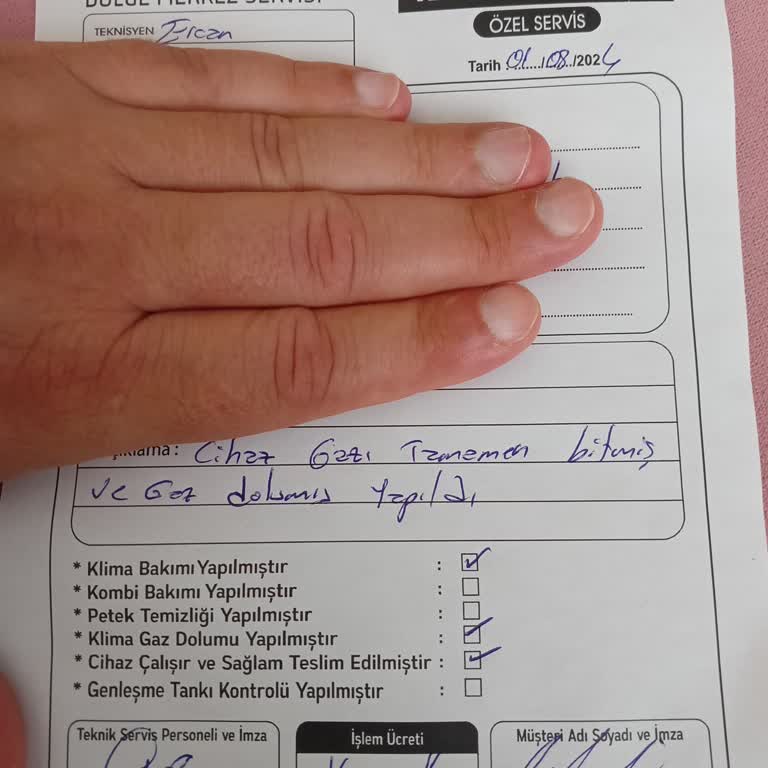 BÖLGE MERKEZ SERVİSİ
TEKNİSYEN Ercan
ÖZEL SERVİS
Tarih 01/08/2024
Açıklama : Cihaz Gazı Tamamen bitmiş
ve Gaz dolumu Yapıldı
* Klima Bakımı Yapılmıştır :
* Kombi Bakımı Yapılmıştır :
* Petek Temizliği Yapılmıştır :
* Klima Gaz Dolumu Yapılmıştır :
* Cihaz Çalışır ve Sağlam Teslim Edilmiştir :
* Genleşme Tankı Kontrolü Yapılmıştır :
Teknik Servis Personeli ve İmza
İşlem Ücreti
Müşteri Adı Soyadı ve İmza